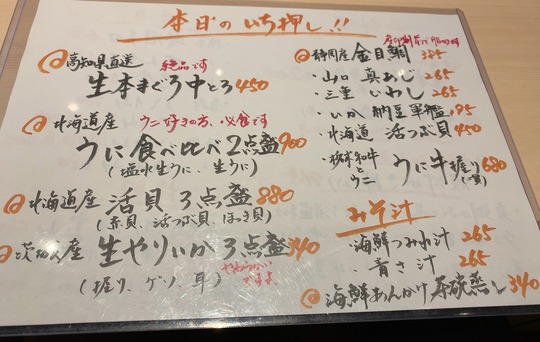 本日のいち押し!!
高知県直送 絶品です
生本まぐろ中とろ 450
北海道産 ウニ好きの方、必食です
うに食べ比べ2点盛 900
(塩水生うに、生うに)
北海道産 活貝3点盛 880
(赤貝、活つぶ貝、ほっき貝)
産 生やりいか3点盛 340
(握り、ゲソ、耳) やわらかいですよ
静岡産 金目鯛 385
・山口 真あじ 265
・三重 いわし 265
・いか納豆軍艦 195
・北海道 活つぶ貝 450
・栃木和牛とウニ うに牛握り 680
みそ汁
・海鮮つみれ汁 265
・青さ汁 265
海鮮あんかけ茶碗蒸し 340